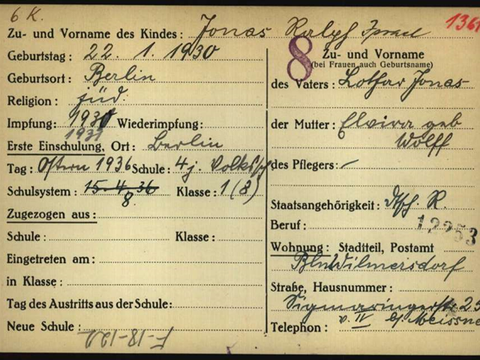 6 K.
Zu- und Vorname des Kindes: Jonas Ralph Israel
Geburtstag: 22. 1. 1930
Geburtsort: Berlin
Religion: jüd.
Impfung: 1930 Wiederimpfung:
1937
Erste Einschulung, Ort: Berlin
Tag: Ostern 1936 Schule: 4 j. Volkssch
Schulsystem: 15.4.36 Klasse: 1 (8)
8.
Zugezogen aus:
Schule: Klasse:
Eingetreten am:
in Klasse:
Tag des Austritts aus der Schule:
Neue Schule:
136
8
Zu- und Vorname
(bei Frauen auch Geburtsname)
des Vaters: Lothar Jonas
der Mutter: Elvira geb
Wolff
des Pflegers: –
Staatsangehörigkeit: Dtsch. R.
Beruf: 12253
Wohnung: Stadtteil, Postamt
Bln Wilmersdorf
Straße, Hausnummer:
Sigmaringerstr 25
Telephon: v. IV b/ Meissne